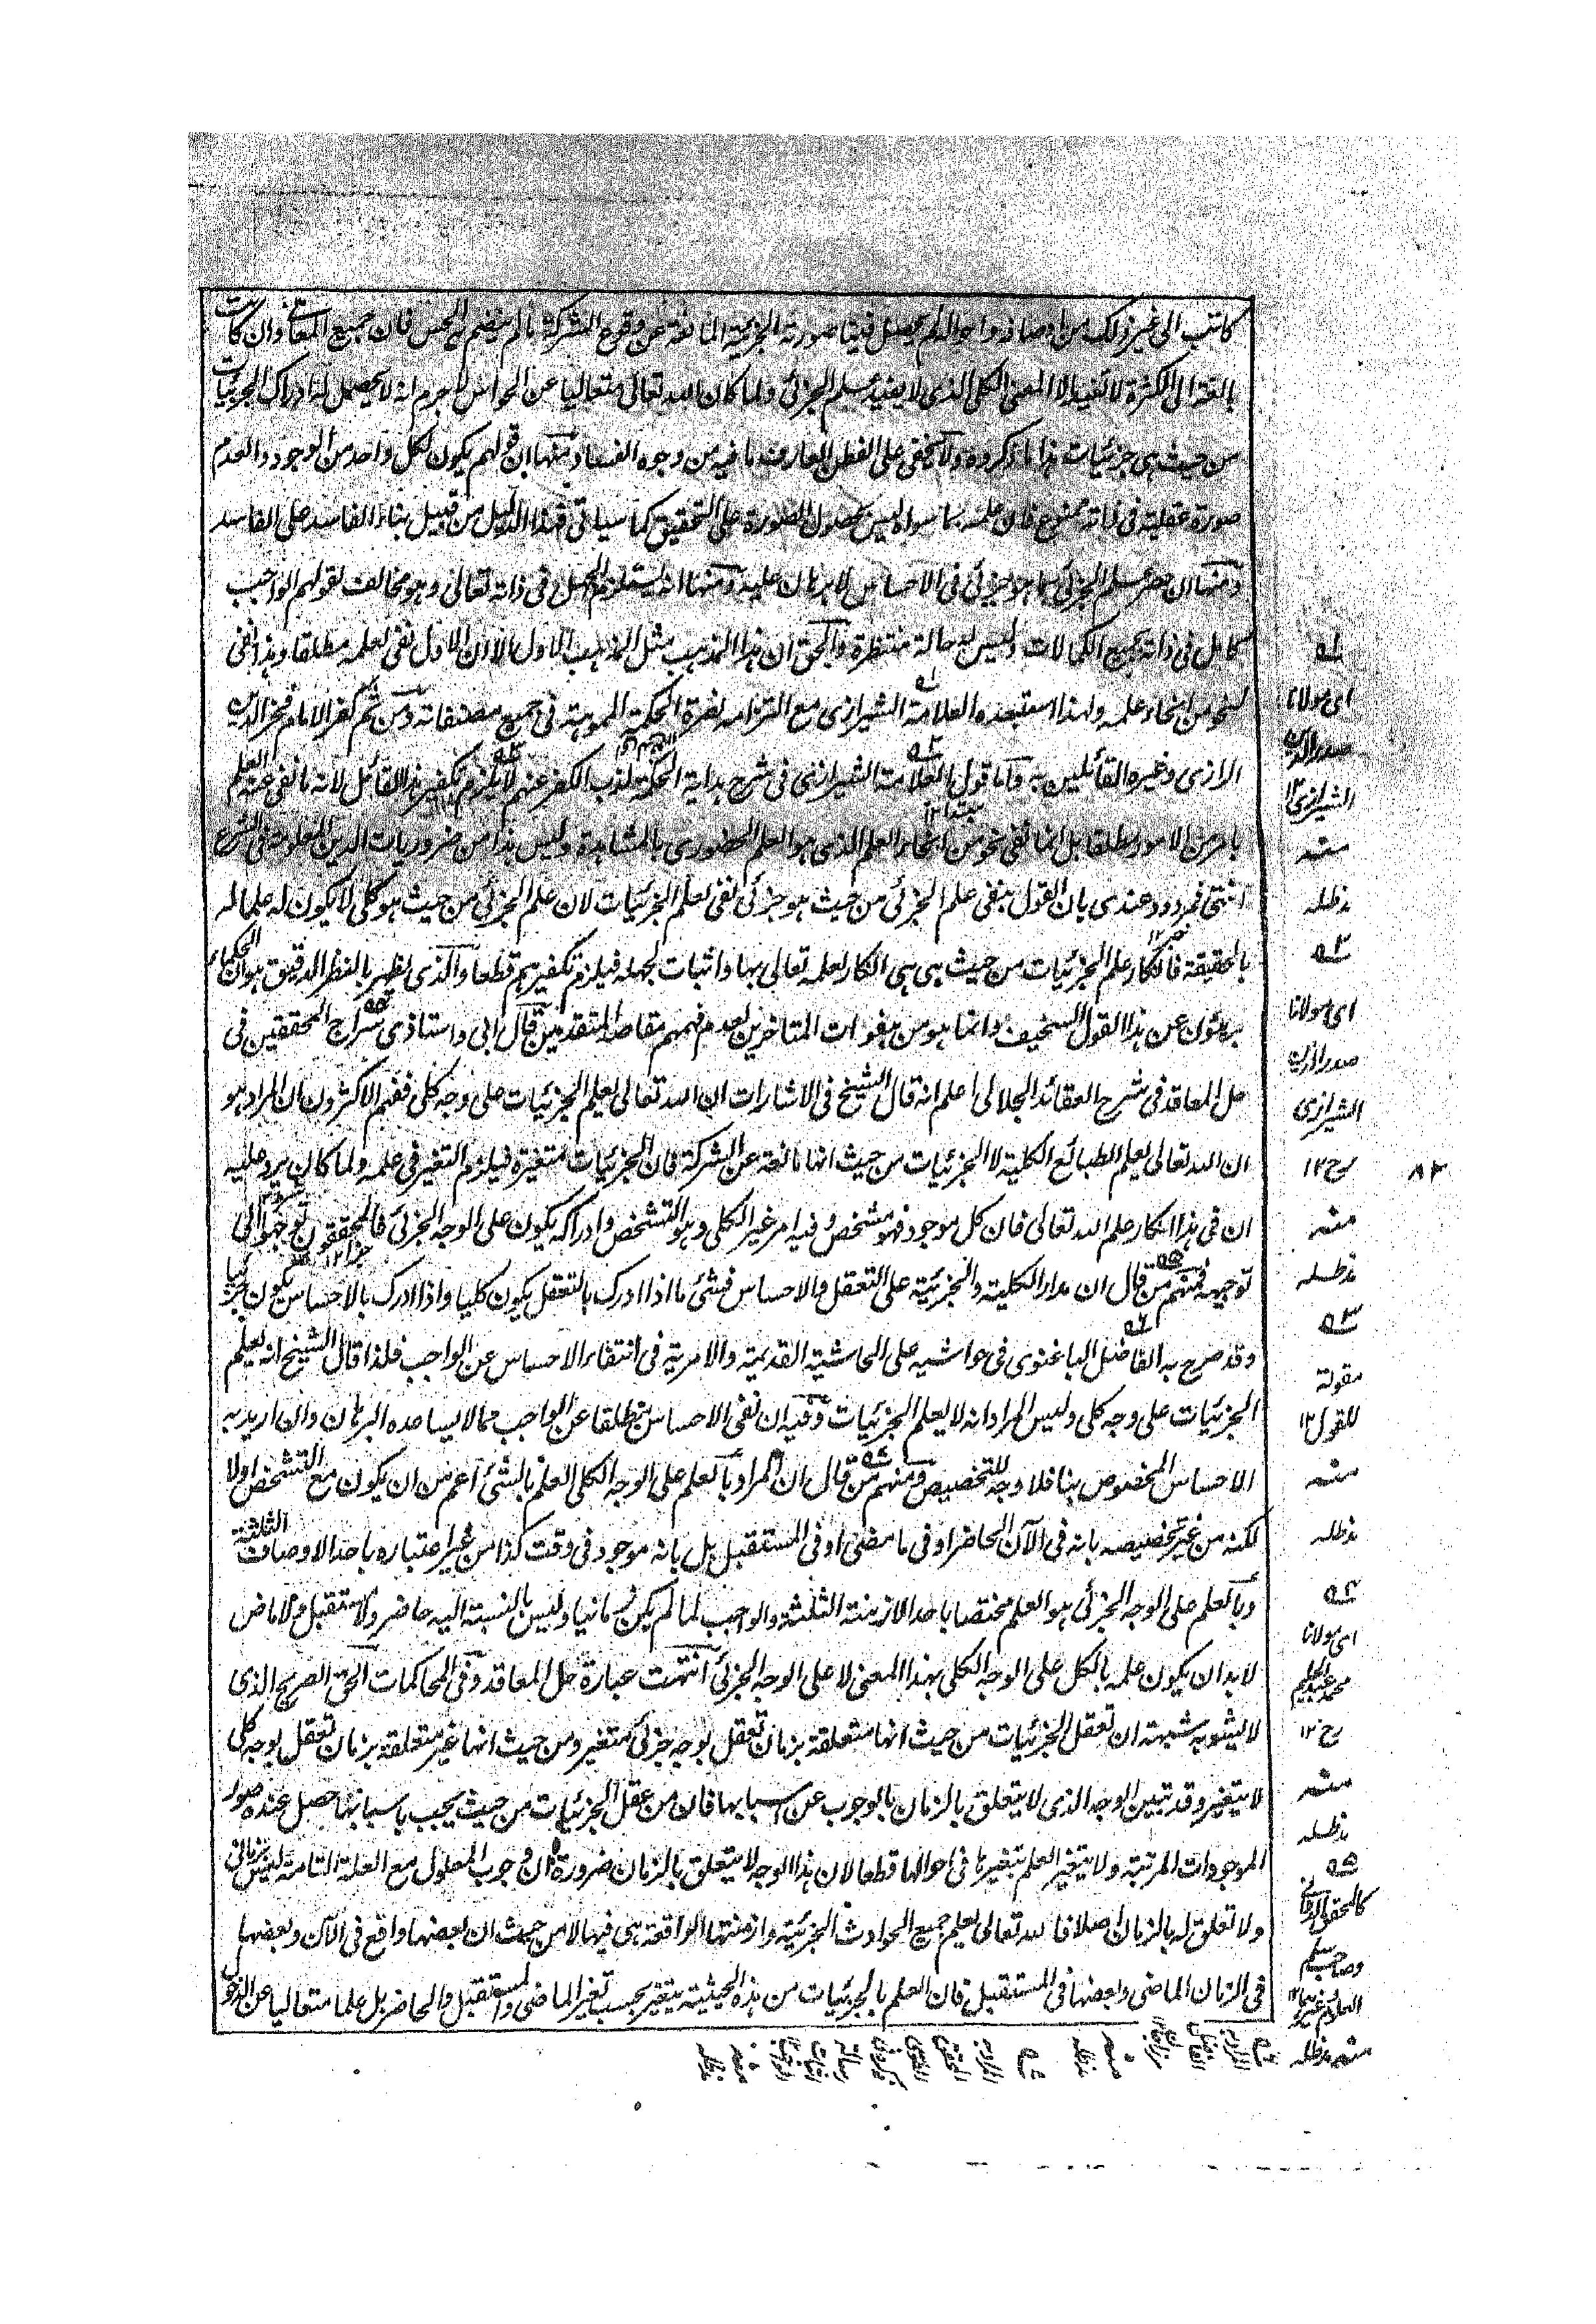 كاتب الى غير ذلك من اوصافه واحواله لم يحصل فينا صورته الجزئية المانعة عن وقوع الشركة ما لم ينضم اليه الحس فان جميع المعاني وان كانت
بالغة الى الكثرة لا تفيد الا المعنى الكلي الذي لا يفيد علم الجزئي ولما كان الله تعالى متعاليا عن الحواس لا جرم انه لا يحصل له ادراك الجزئيات
من حيث هي جزئيات هذا ما ذكروه ولا يخفى على الفطن العارف ما فيه من وجوه الفساد منها ان قولهم يكون لكل واحد من الوجود والعدم
صورة عقلية في ذاته ممنوع فان علمه بما سواه ليس بحصول الصورة على التحقيق كما سياتي فهذا الدليل من قبيل بناء الفاسد على الفاسد
ومنها ان حصر علم الجزئي بما هو جزئي في الاحساس لا برهان عليه ومنها انه يستلزم الجهل في ذاته تعالى وهو مخالف لقولهم الواجب
كامل في ذاته بجميع الكمالات وليس له حالة منتظرة والحق ان هذا المذهب مثل المذهب الاول الا ان الاول نفى لعلمه مطلقا وهذا نفى
لنحو من انحاء علمه ولهذا استبعده العلامة الشيرازي مع التزامه لنصرة الحكمة المموهة في جميع مصنفاته ومن ثم كفر الامام فخر الدين
الرازي وغيره القائلين به واما قول العلامة الشيرازي في شرح هداية الحكمة لذب الكفر عنهم لا يلزم تكفير هذا القائل لانه ما نفى عنه العلم
بامر من الامور مطلقا بل انما نفى نحو من انحاء العلم الذي هو العلم الحضوري بالمشاهدة وليس هذا من ضروريات الدين المعلومة في الشرع
انتهى فمردود عندى بان القول بنفى علم الجزئي من حيث هو جزئي نفى لعلم الجزئيات لان علم الجزئي من حيث هو كلي لا يكون له علما له
بالحقيقة فانكار علم الجزئيات من حيث هي هي انكار لعلمه تعالى بها واثبات لجهله فيلزم تكفيرهم قطعا والذي يظهر بالنظر الدقيق هو ان الحكماء
بريئون عن هذا القول السخيف وانما هو من هفوات المتاخرين لعدم فهمهم مقاصد المتقدمين قال ابي واستاذي سراج المحققين في
حل المعاقد في شرح العقائد الجلالي اعلم انه قال الشيخ في الاشارات ان الله تعالى يعلم الجزئيات على وجه كلي ففهم الاكثرون ان المراد هو
ان الله تعالى يعلم الطبائع الكلية لا الجزئيات من حيث انها مانعة عن الشركة فان الجزئيات متغيرة فيلزم التغير في علمه ولما كان يرد عليه
ان في هذا انكار علم الله تعالى فان كل موجود فهو مشخص وفيه امر غير الكلي وهو التشخص وادراكه يكون على الوجه الجزئي فالمحققون توجهوا الى
توجيهه فمنهم من قال ان مدار الكلية والجزئية على التعقل والاحساس فشئ ما اذا ادرك بالتعقل يكون كليا واذا ادرك بالاحساس يكون جزئيا
وقد صرح به الفاضل الباغنوي في حواشيه على الحاشية القديمة والامرية في انتفاء الاحساس عن الواجب فلذا قال الشيخ انه يعلم
الجزئيات على وجه كلي وليس المراد انه لا يعلم الجزئيات وفيه ان نفى الاحساس مطلقا عن الواجب مما لا يساعده البرهان وان اريد به
الاحساس المخصوص بنا فلا وجه للتخصيص ومنهم من قال ان المراد بالعلم على الوجه الكلي العلم بالشئ اعم من ان يكون مع التشخص اولا
لكنه من غير تخصيصه بانه في الآن الحاضر او في ما مضى او في المستقبل بل بانه موجود في وقت كذا من غير اعتباره باحد الاوصاف الثلثة
وبالعلم على الوجه الجزئي هو العلم مختصا باحد الازمنة الثلثة والواجب لما لم يكن زمانيا وليس بالنسبة اليه حاضر ولا مستقبل ولا ماض
لا بد ان يكون علمه بالكل على الوجه الكلي بهذا المعنى لا على الوجه الجزئي انتهت عبارة حل المعاقد وفي المحاكمات الحق الصريح الذي
لا يشوبه شبهة ان تعقل الجزئيات من حيث انها متعلقة بزمان تعقل بوجه جزئي متغير ومن حيث انها غير متعلقة بزمان تعقل بوجه كلي
لا يتغير وقد تبين الوجه الذي لا يتعلق بالزمان بالوجوب عن اسبابها فان من عقل الجزئيات من حيث يجب باسبابها حصل عنده صور
الموجودات المرتبة ولا يتغير العلم بتغير ما في احوالها قطعا لان هذا الوجه لا يتعلق بالزمان ضرورة ان وجوب المعلول مع العلة التامة ليس بزماني
ولا تعلق له بالزمان اصلا فالله تعالى يعلم جميع الحوادث الجزئية وازمنتها الواقعة هي فيها لا من حيث ان بعضها واقع في الآن وبعضها
في الزمان الماضي وبعضها في المستقبل فان العلم بالجزئيات من هذه الحيثية يتغير بحسب تغير الماضي والمستقبل والحاضر بل علما متعاليا عن الدخول
اى مولانا
صدر الدين
الشيرازي ١٢
منه
مد ظله
اى مولانا
صدر الدين
الشيرازي
رح ١٢
منه
مد ظله
مقولة
للقول ١٢
منه
مد ظله
اى مولانا
محمد عبد الحليم
رح ١٢
منه
مد ظله
كالمحقق الدواني
وصاحب سلم
العلوم وغيرهما ١٢
منه مد ظله
٨٢